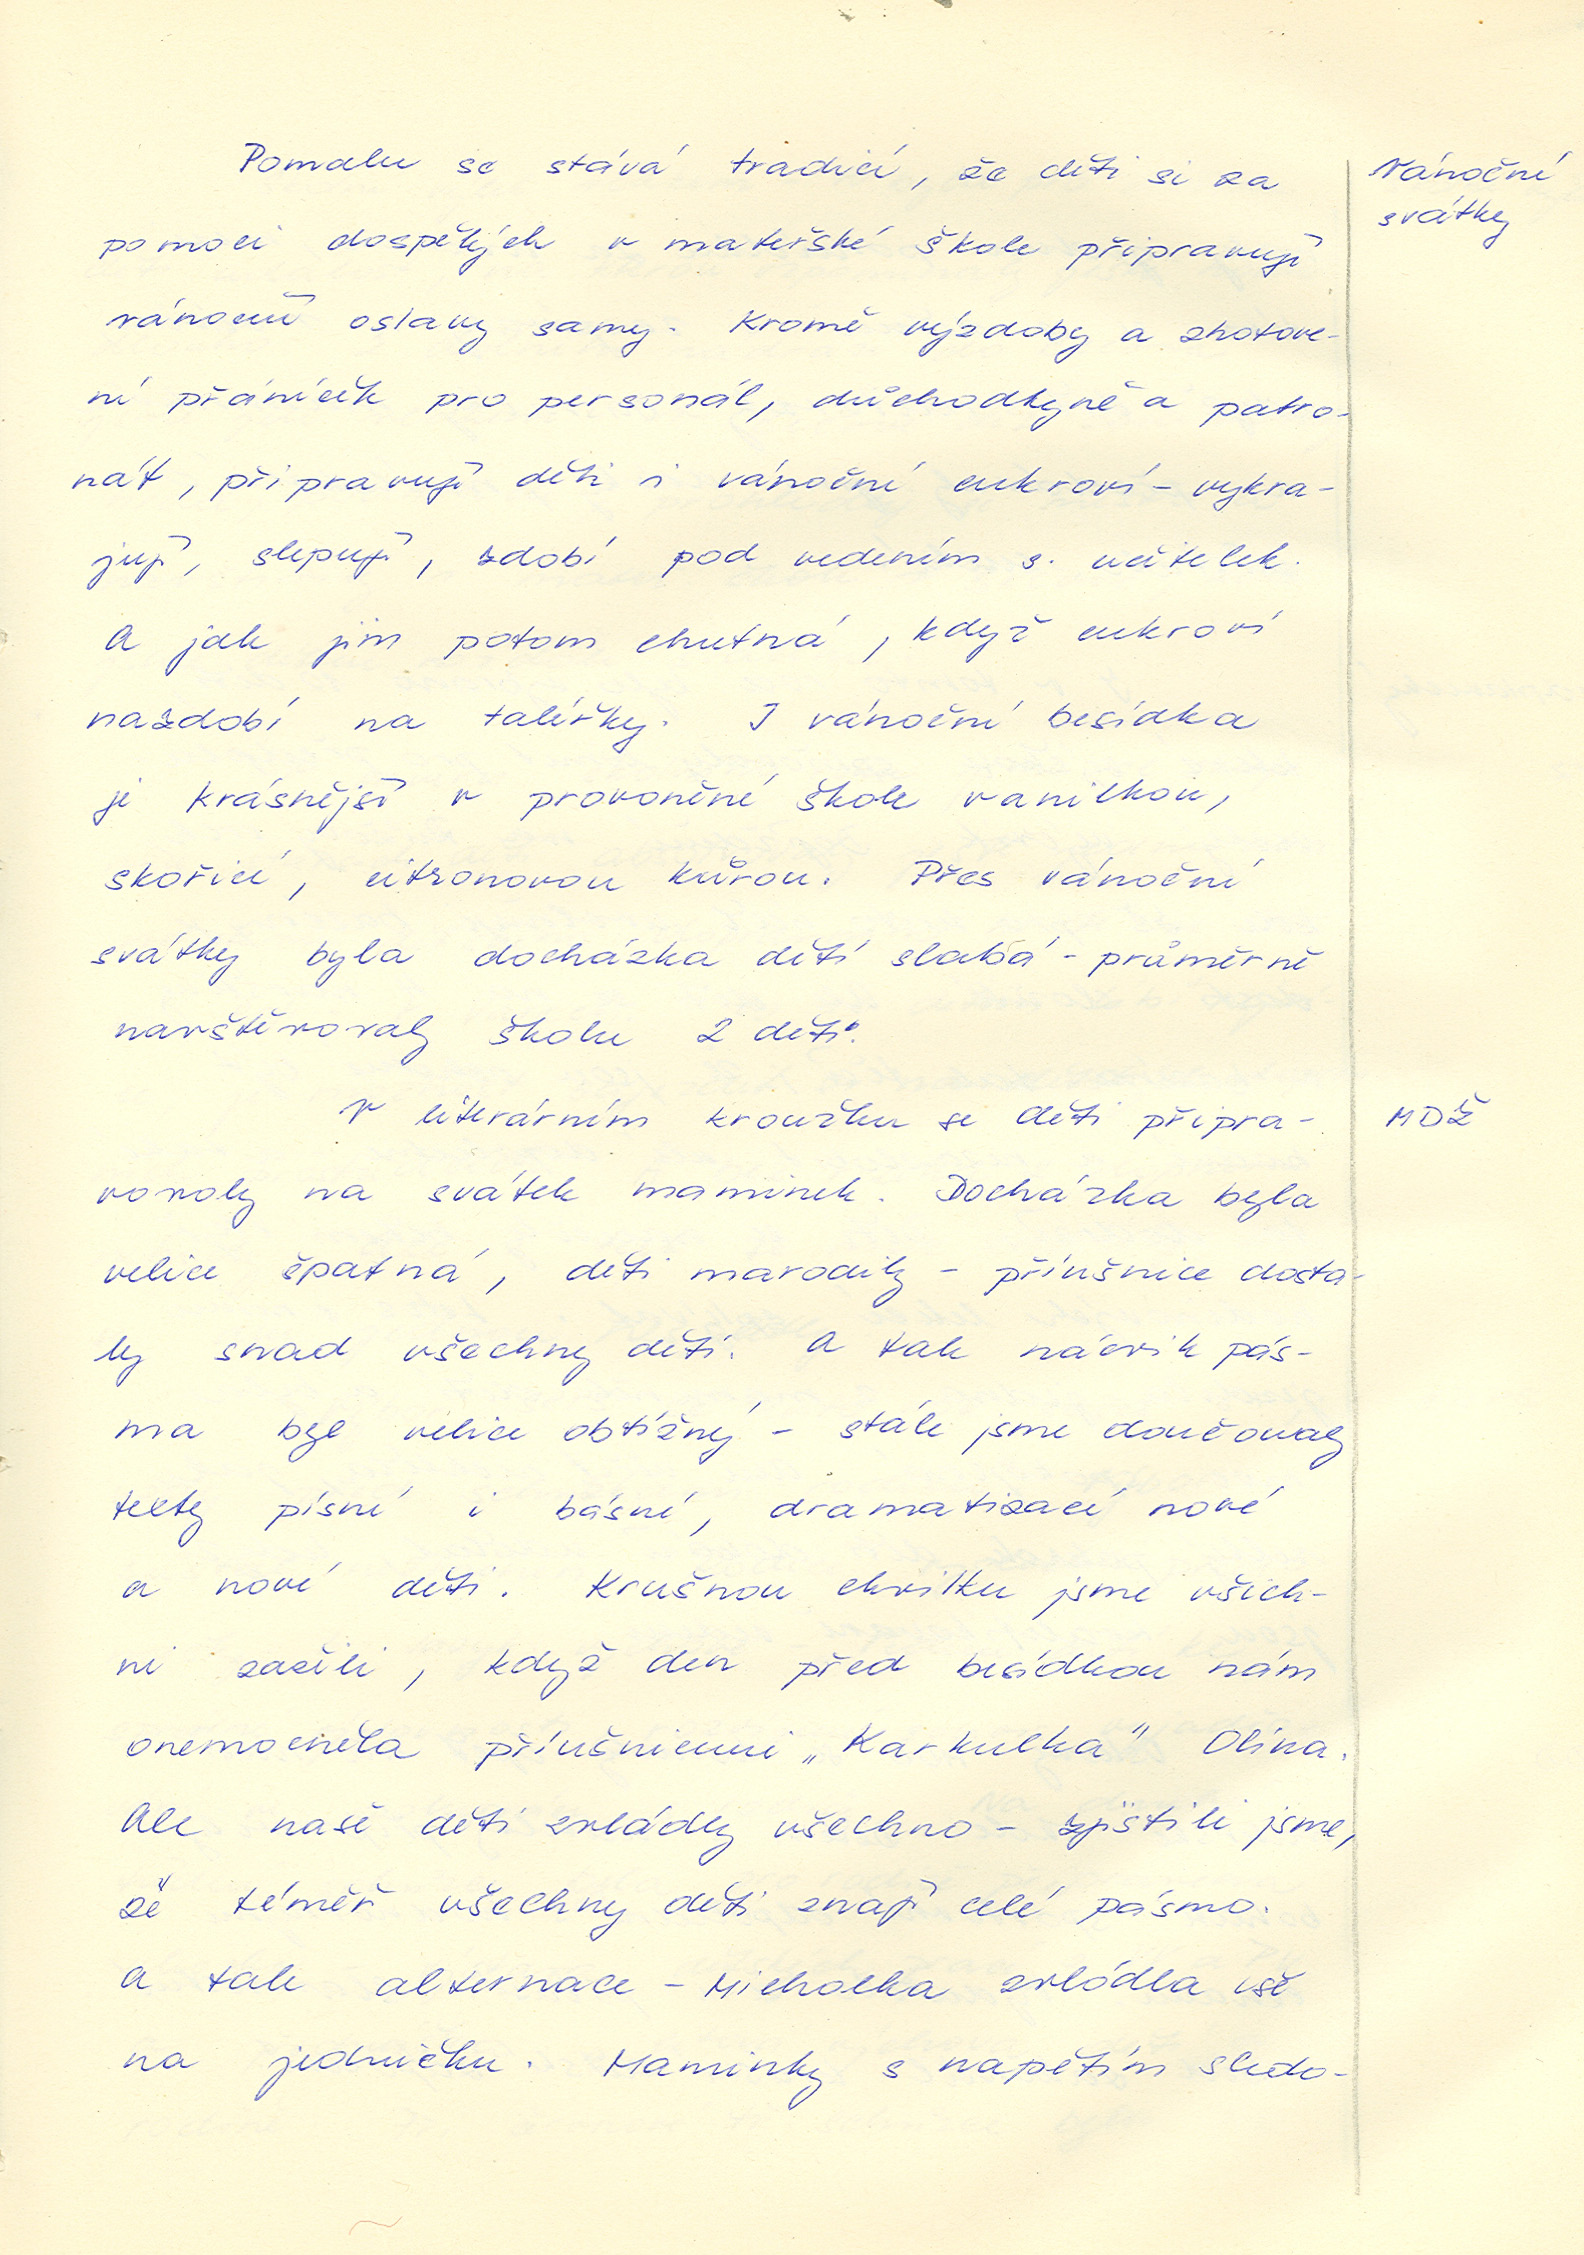 Pomalu se stává tradicí, že děti si za
Vánoční
svátky
pomoci dospělých v mateřské škole připravují
vánoční oslavy samy. Kromě výzdoby a zhotove-
ní přáníček pro personál, důchodkyně a patro-
nát, připravují děti i vánoční cukroví - vykra-
jují, slepují, zdobí pod vedením s. učitelek.
A jak jim potom chutná, když cukroví
nazdobí na talířky. I vánoční besídka
je krásnější v provoněné škole vanilkou,
skořicí, citronovou kůrou. Přes vánoční
svátky byla docházka dětí slabá - průměrně
navštěvovaly školu 2 děti.
V literárním kroužku se děti připra-
MDŽ
vovaly na svátek maminek. Docházka byla
velice špatná, děti marodily - příušnice dosta-
ly snad všechny děti. A tak nácvik pás-
ma byl velice obtížný - stále jsme doučovaly
texty písní i básní, dramatizací nové
a nové děti. Krušnou chvilku jsme všich-
ni zažili, když den před besídkou nám
onemocněla příušnicemi „Karkulka" Olina.
Ale naše děti zvládly všechno - zjistili jsme,
že téměř všechny děti znají celé pásmo.
A tak alternace - Michalka zvládla vše
na jedničku. Maminky s napětím sledo-